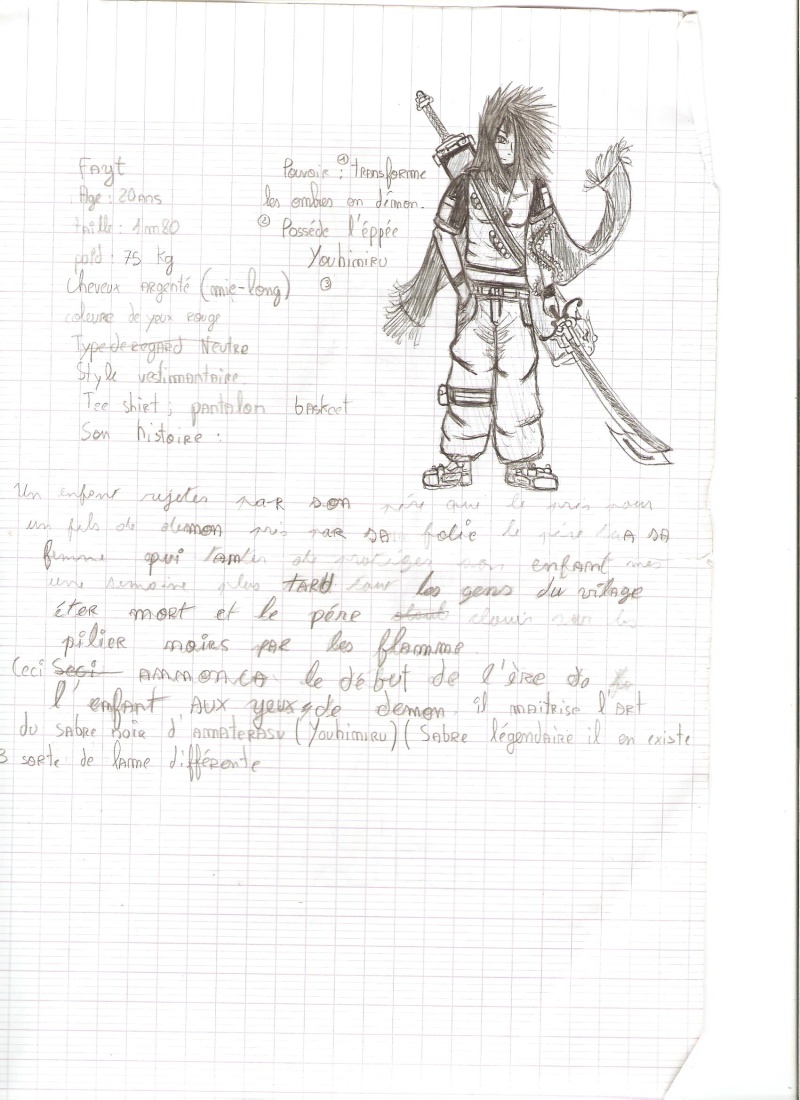 Fayt
Age : 20 ans
taille : 1m80
poid : 75 kg
Cheveux argenté (mie-long)
couleure de yeux rouge
Type de regard Neutre
Style vestimantaire
Tee shirt ; pantalon basket
Son histoire :
Pouvoir : ① transforme
les ombres en démon.
② Posséde l'éppée
Youhimiru
③
Un enfant rejeter par son père que le pris pour
un fils de demon pris par sa folie le père tua sa
femme qui de protéger son enfant mes
une semaine plus tard tout les gens du village
éter mort et le pére sur le
pilier noirs par les flamme
Ceci Seci annonca le début de l'ère de
l'enfant aux yeux de demon. il maitrise l'art
du sabre noir d'amaterasu (Youhimiru) (Sabre légendaire il en existe
3 sorte de lame différente